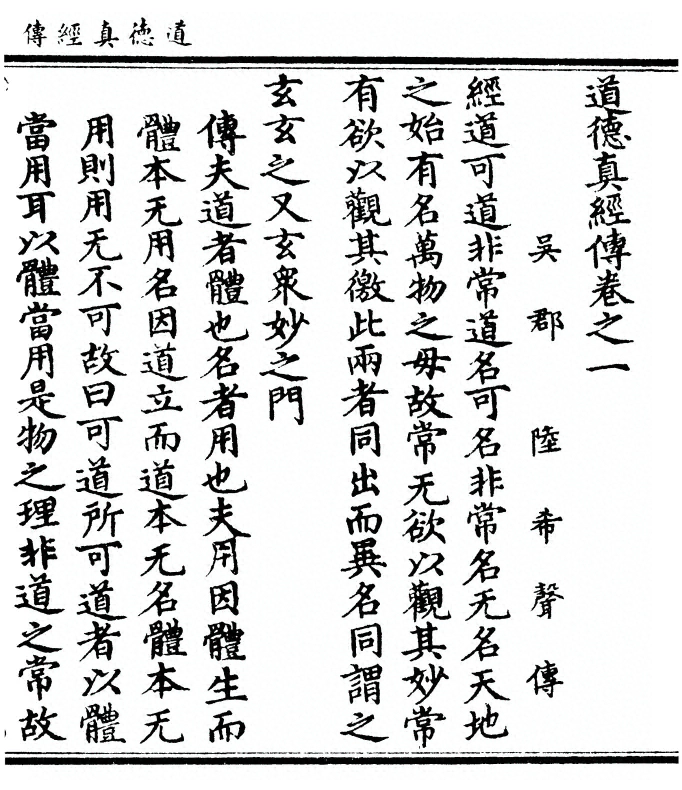 道德真經傳
道德真經傳卷之一
吳郡 陸希聲傳
經道可道非常道名可名非常名无名天地
之始有名萬物之母故常无欲以觀其妙常
有欲以觀其徼此兩者同出而異名同謂之
玄玄之又玄衆妙之門
傳夫道者體也名者用也夫用因體生而
體本无用名因道立而道本无名體本无
用則用无不可故曰可道所可道者以體
當用耳以體當用是物之理非道之常故